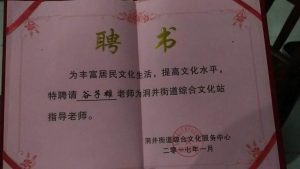 聘 书
为丰富居民文化生活，提高文化水平，
特聘请 谷子雄 老师为洞井街道综合文化站
指导老师。
洞井街道综合文化服务中心
二零一七年一月